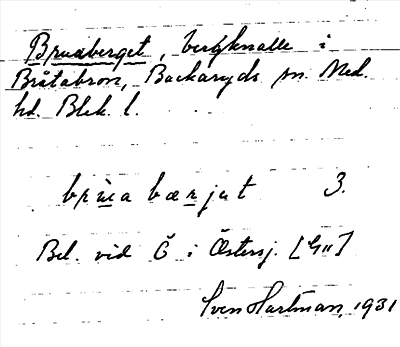 Bruaberget, bergknalle i
Bråtabron, Backaryds sn. Med.
hd. Blek. l.
bpùa bærjat 3.
Bel. vid Ö i Östersj. [G11]
Sven Hartman, 1931